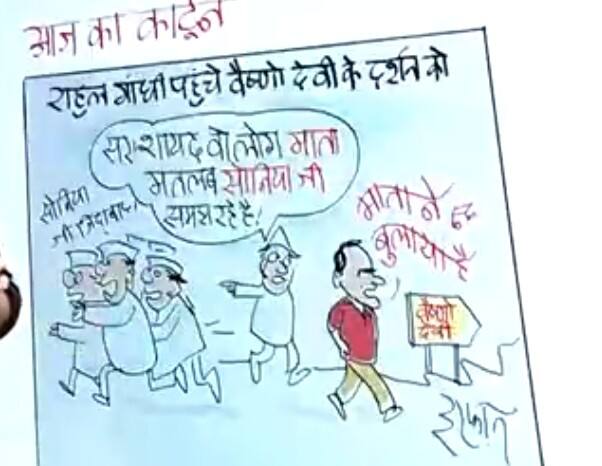 आज का कार्टून
राहुल गांधी पहुंचे वैष्णो देवी के दर्शन को
सर! शायद वो लोग माता
मतलब सोनिया जी
समझ रहे है!
सोनिया
जी जिंदाबाद!
माता ने
बुलाया है
वैष्णो
देवी
इरफान